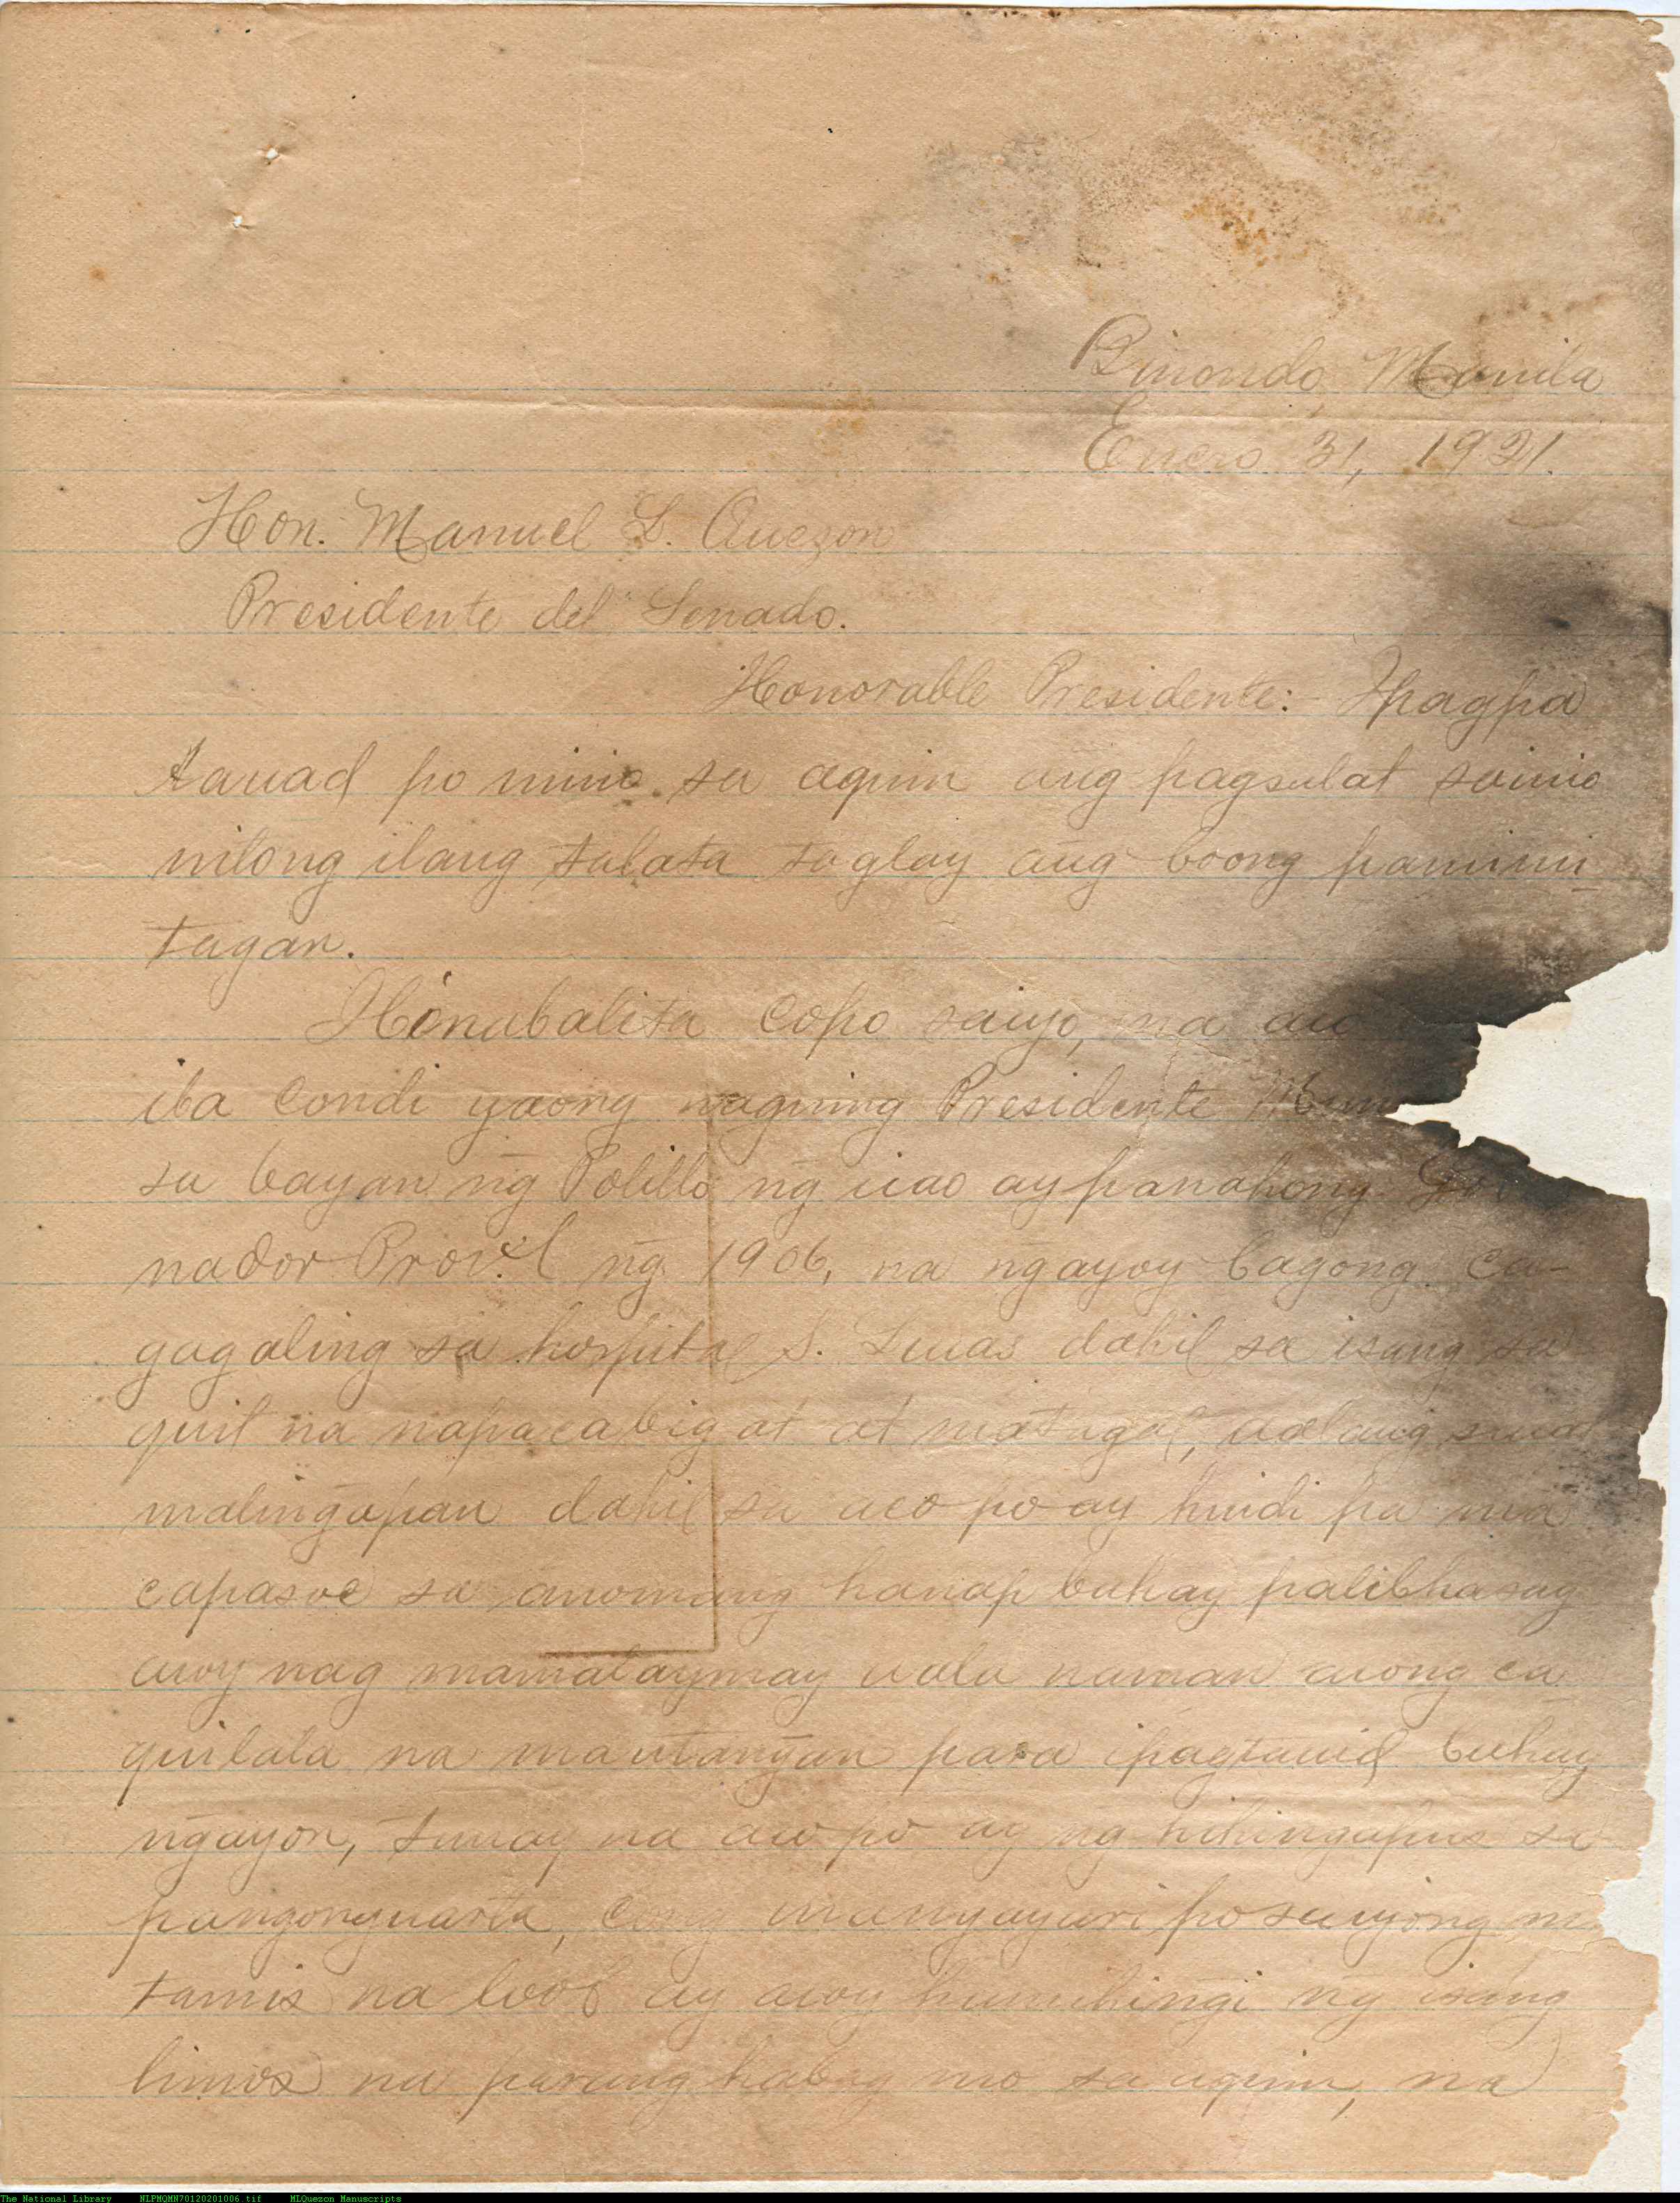 Binondo, Manila
Enero 31, 1921.
Hon. Manuel L. Quezon
Presidente del Senado.
Honorable Presidente: Ipagpa
tauad po ninio sa aquin ang pagsulat sainio
nitong ilang talata taglay ang boong paninini
tagan.
Ibinabalita copo saiyo, na aco
iba condi yaong naguing Presidente
sa bayan ng̃ Polillo ng̃ icao ay panahong
nador Prov.l ng̃ 1906, na ng̃ayoy bagong ca-
gagaling sa hospital S. Lucas dahil sa isang sa
quit na napacabigat at matagal, ualang
maling̃apan dahil sa aco po ay hindi pa ma
capasoc sa anomang hanap buhay palibhasay
acoy nag mamalaymay uala naman acong ca
quilala na mautang̃an para ipagtauid buhay
ng̃ayon, tunay na aco po ay ng̃ sa
pangonguarta, cong mangyayari po saiyong
tamis na loob ay acoy humihing̃i ng̃ isang
limos na parang habag mo sa aquin, na
The National Library NLPMQMN70120201006.tif MLQuezon Manuscripts